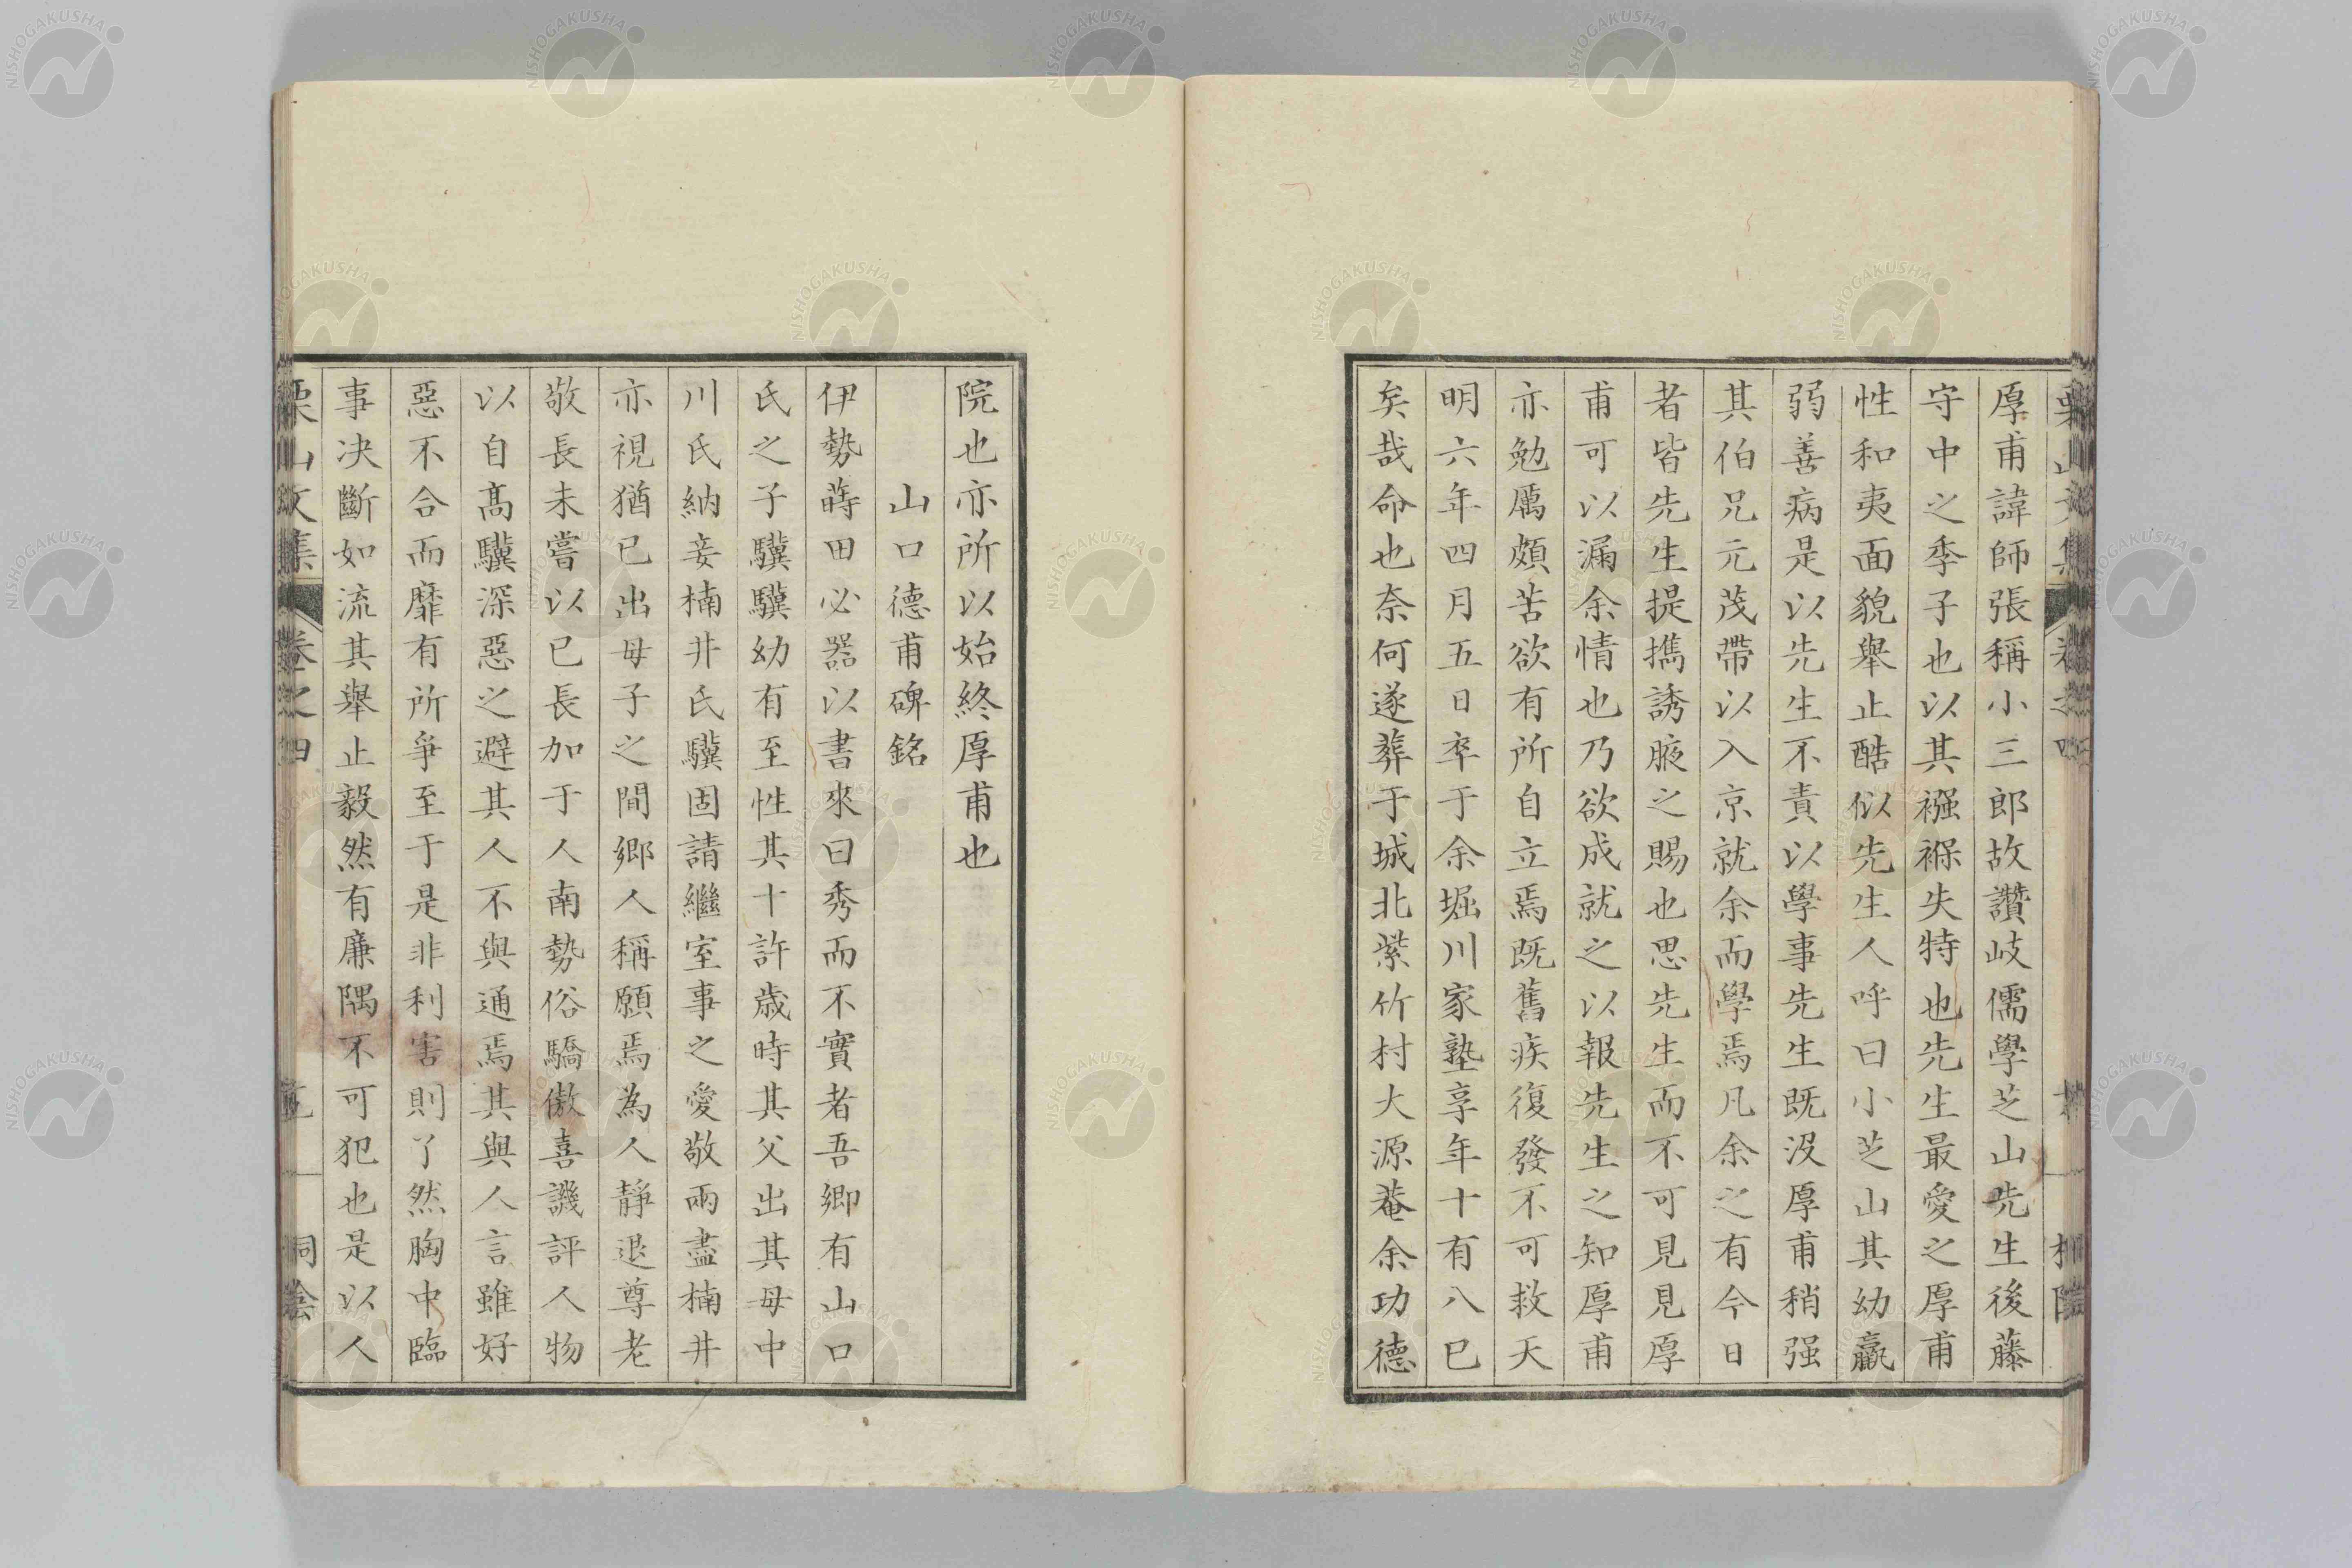 厚甫諱師張稱小三郎故讚岐儒學芝山先生後藤
守中之季子也以其襁褓失特也先生最愛之厚甫
性和夷面貌舉止酷似先生人呼曰小芝山其幼羸
弱善病是以先生不責以學事先生既沒厚甫稍强
其伯兄元茂帶以入京就余而學焉凡余之有今日
者皆先生提攜誘腋之賜也思先生而不可見見厚
甫可以漏余情也乃欲成就之以報先生之知厚甫
亦勉厲頗苦欲有所自立焉既舊疾復發不可救天
明六年四月五日卒于余堀川家塾享年十有八已
矣哉命也奈何遂葬于城北紫竹村大源菴余功德
院也亦所以始終厚甫也
山口德甫碑銘
伊勢蒔田必器以書來曰秀而不實者吾鄉有山口
氏之子驥驥幼有至性其十許歲時其父出其母中
川氏納妾楠井氏驥固請繼室事之愛敬兩盡楠井
亦視猶已出母子之間鄉人稱願焉為人靜退尊老
敬長未嘗以已長加于人南勢俗驕傲喜譏評人物
以自髙驥深惡之避其人不與通焉其與人言雖好
惡不合而靡有所爭至于是非利害則了然胸中臨
事决斷如流其舉止毅然有廉隅不可犯也是以人
栗山文集 卷之四
NISHOGAKUSHA